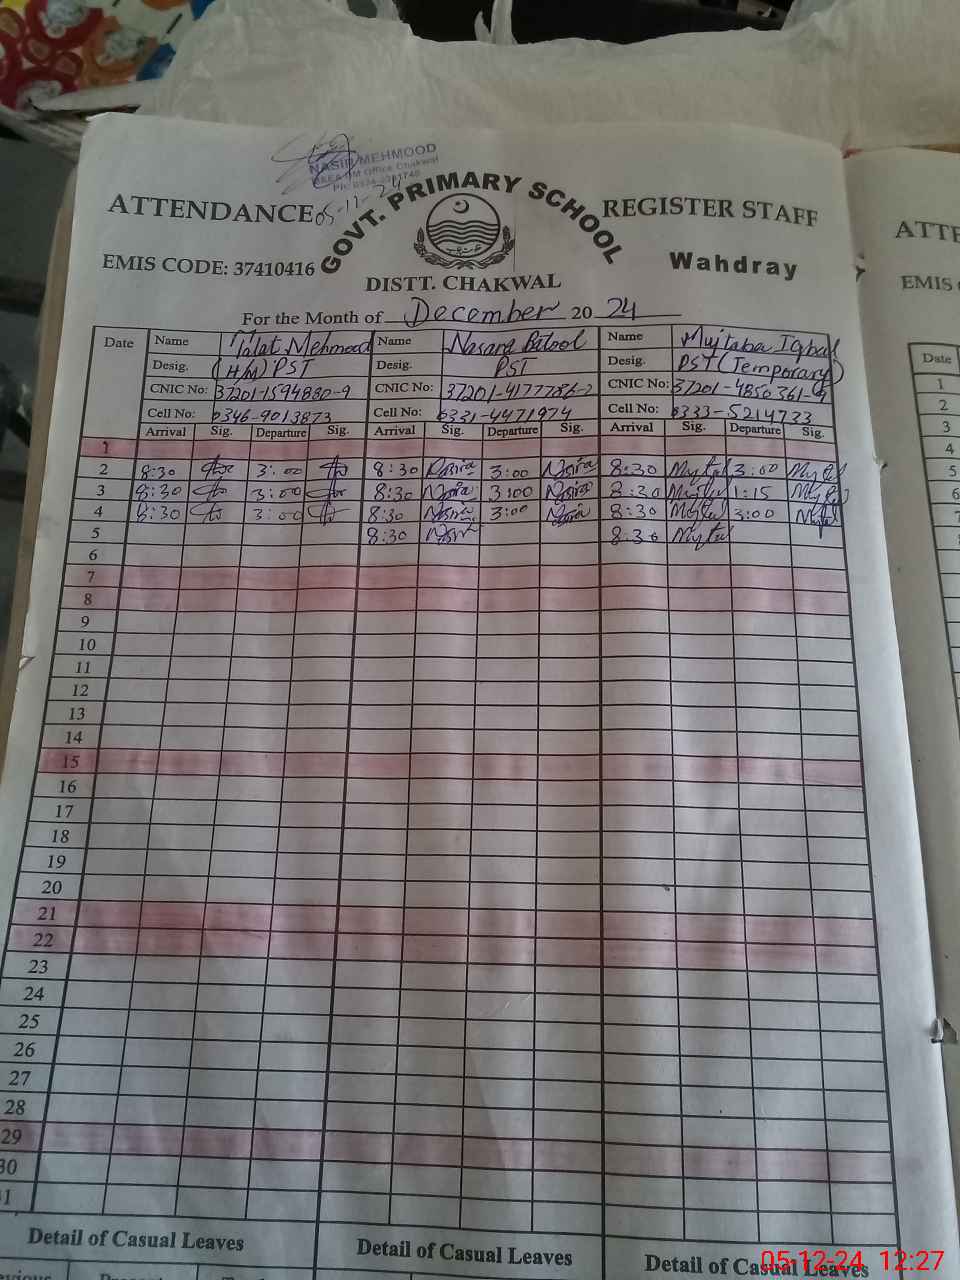 NASIR MEHMOOD
Office Chakwal
05-12-24
GOVT. PRIMARY SCHOOL
ATTENDANCE REGISTER STAFF ATTE
EMIS CODE: 37410416 Wahdray EMIS
DISTT. CHAKWAL
For the Month of December 20 24
Date Name Talat Mehmood Name Nasara Batool Name Mujtaba Iqbal Date
Desig. (HM) PST Desig. PST Desig. PST (Temporary)
CNIC No: 37201-1594880-9 CNIC No: 37201-4177786-2 CNIC No: 37201-4850361-9
Cell No: 0346-9013873 Cell No: 0331-4471974 Cell No: 0333-5214733
Arrival Sig. Departure Sig. Arrival Sig. Departure Sig. Arrival Sig. Departure Sig.
1
2 8:30 3:00 8:30 3:00 8:30 3:00
3 8:30 3:00 8:30 3:00 8:30 1:15
4 8:30 3:00 8:30 3:00 8:30 3:00
5 8:30 8:30
6
7
8
9
10
11
12
13
14
15
16
17
18
19
20
21
22
23
24
25
26
27
28
29
30
31
Detail of Casual Leaves Detail of Casual Leaves Detail of Casual Leaves
1
2
3
4
5
6
7
05-12-24 12:27